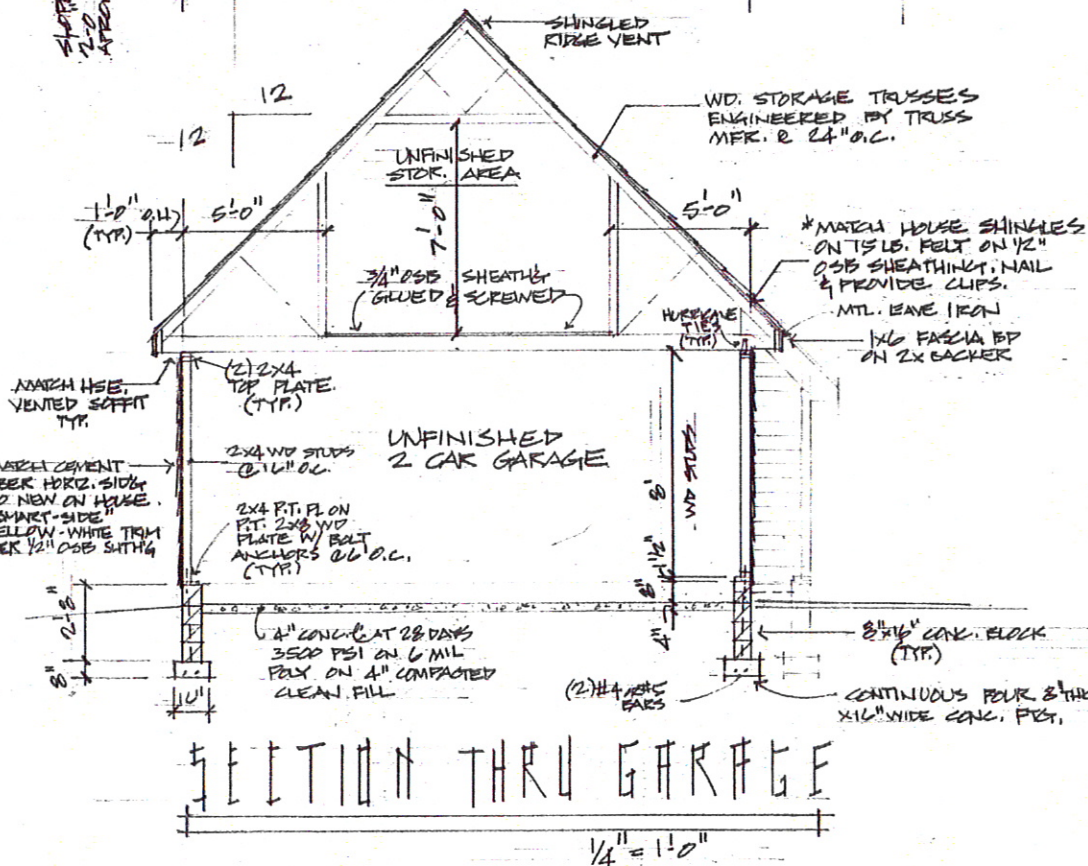 SHINGLED
RIDGE VENT
12
12
WD. STORAGE TRUSSES
ENGINEERED BY TRUSS
MFR. @ 24" O.C.
UNFINISHED
STOR. AREA
7'-0"
1'-0" O.H.
(TYP.)
5'-0"
5'-0"
*MATCH HOUSE SHINGLES
ON 15 LB. FELT ON 1/2"
OSB SHEATHING. NAIL
& PROVIDE CLIPS.
3/4" OSB SHEATH'G
GLUED & SCREWED
HURRICANE
TIES
(TYP.)
MTL. EAVE IRON
1x6 FASCIA BD
ON 2x BACKER
MATCH HSE.
VENTED SOFFIT
TYP.
(2) 2x4
TOP PLATE
(TYP.)
UNFINISHED
2 CAR GARAGE
2x4 WD STUDS
@ 16" O.C.
8' WD STUDS
MATCH CEMENT
HORIZ. SID'G
NEW ON HOUSE.
SMART-SIDE"
YELLOW-WHITE TRIM
1/2" OSB SHTH'G
2x4 P.T. PL ON
P.T. 2x8 WD
PLATE W/ BOLT
ANCHORS @ 6' O.C.
(TYP.)
1 1/2"
8"
4"
2'-8"
8"
16"
4" CONC. AT 28 DAYS
3500 PSI ON 6 MIL
POLY ON 4" COMPACTED
CLEAN FILL
8"x16" CONC. BLOCK
(TYP.)
(2) #4
BARS
CONTINUOUS POUR 8" THK
x16" WIDE CONC. FTG.
SECTION THRU GARAGE
1/4" = 1'-0"